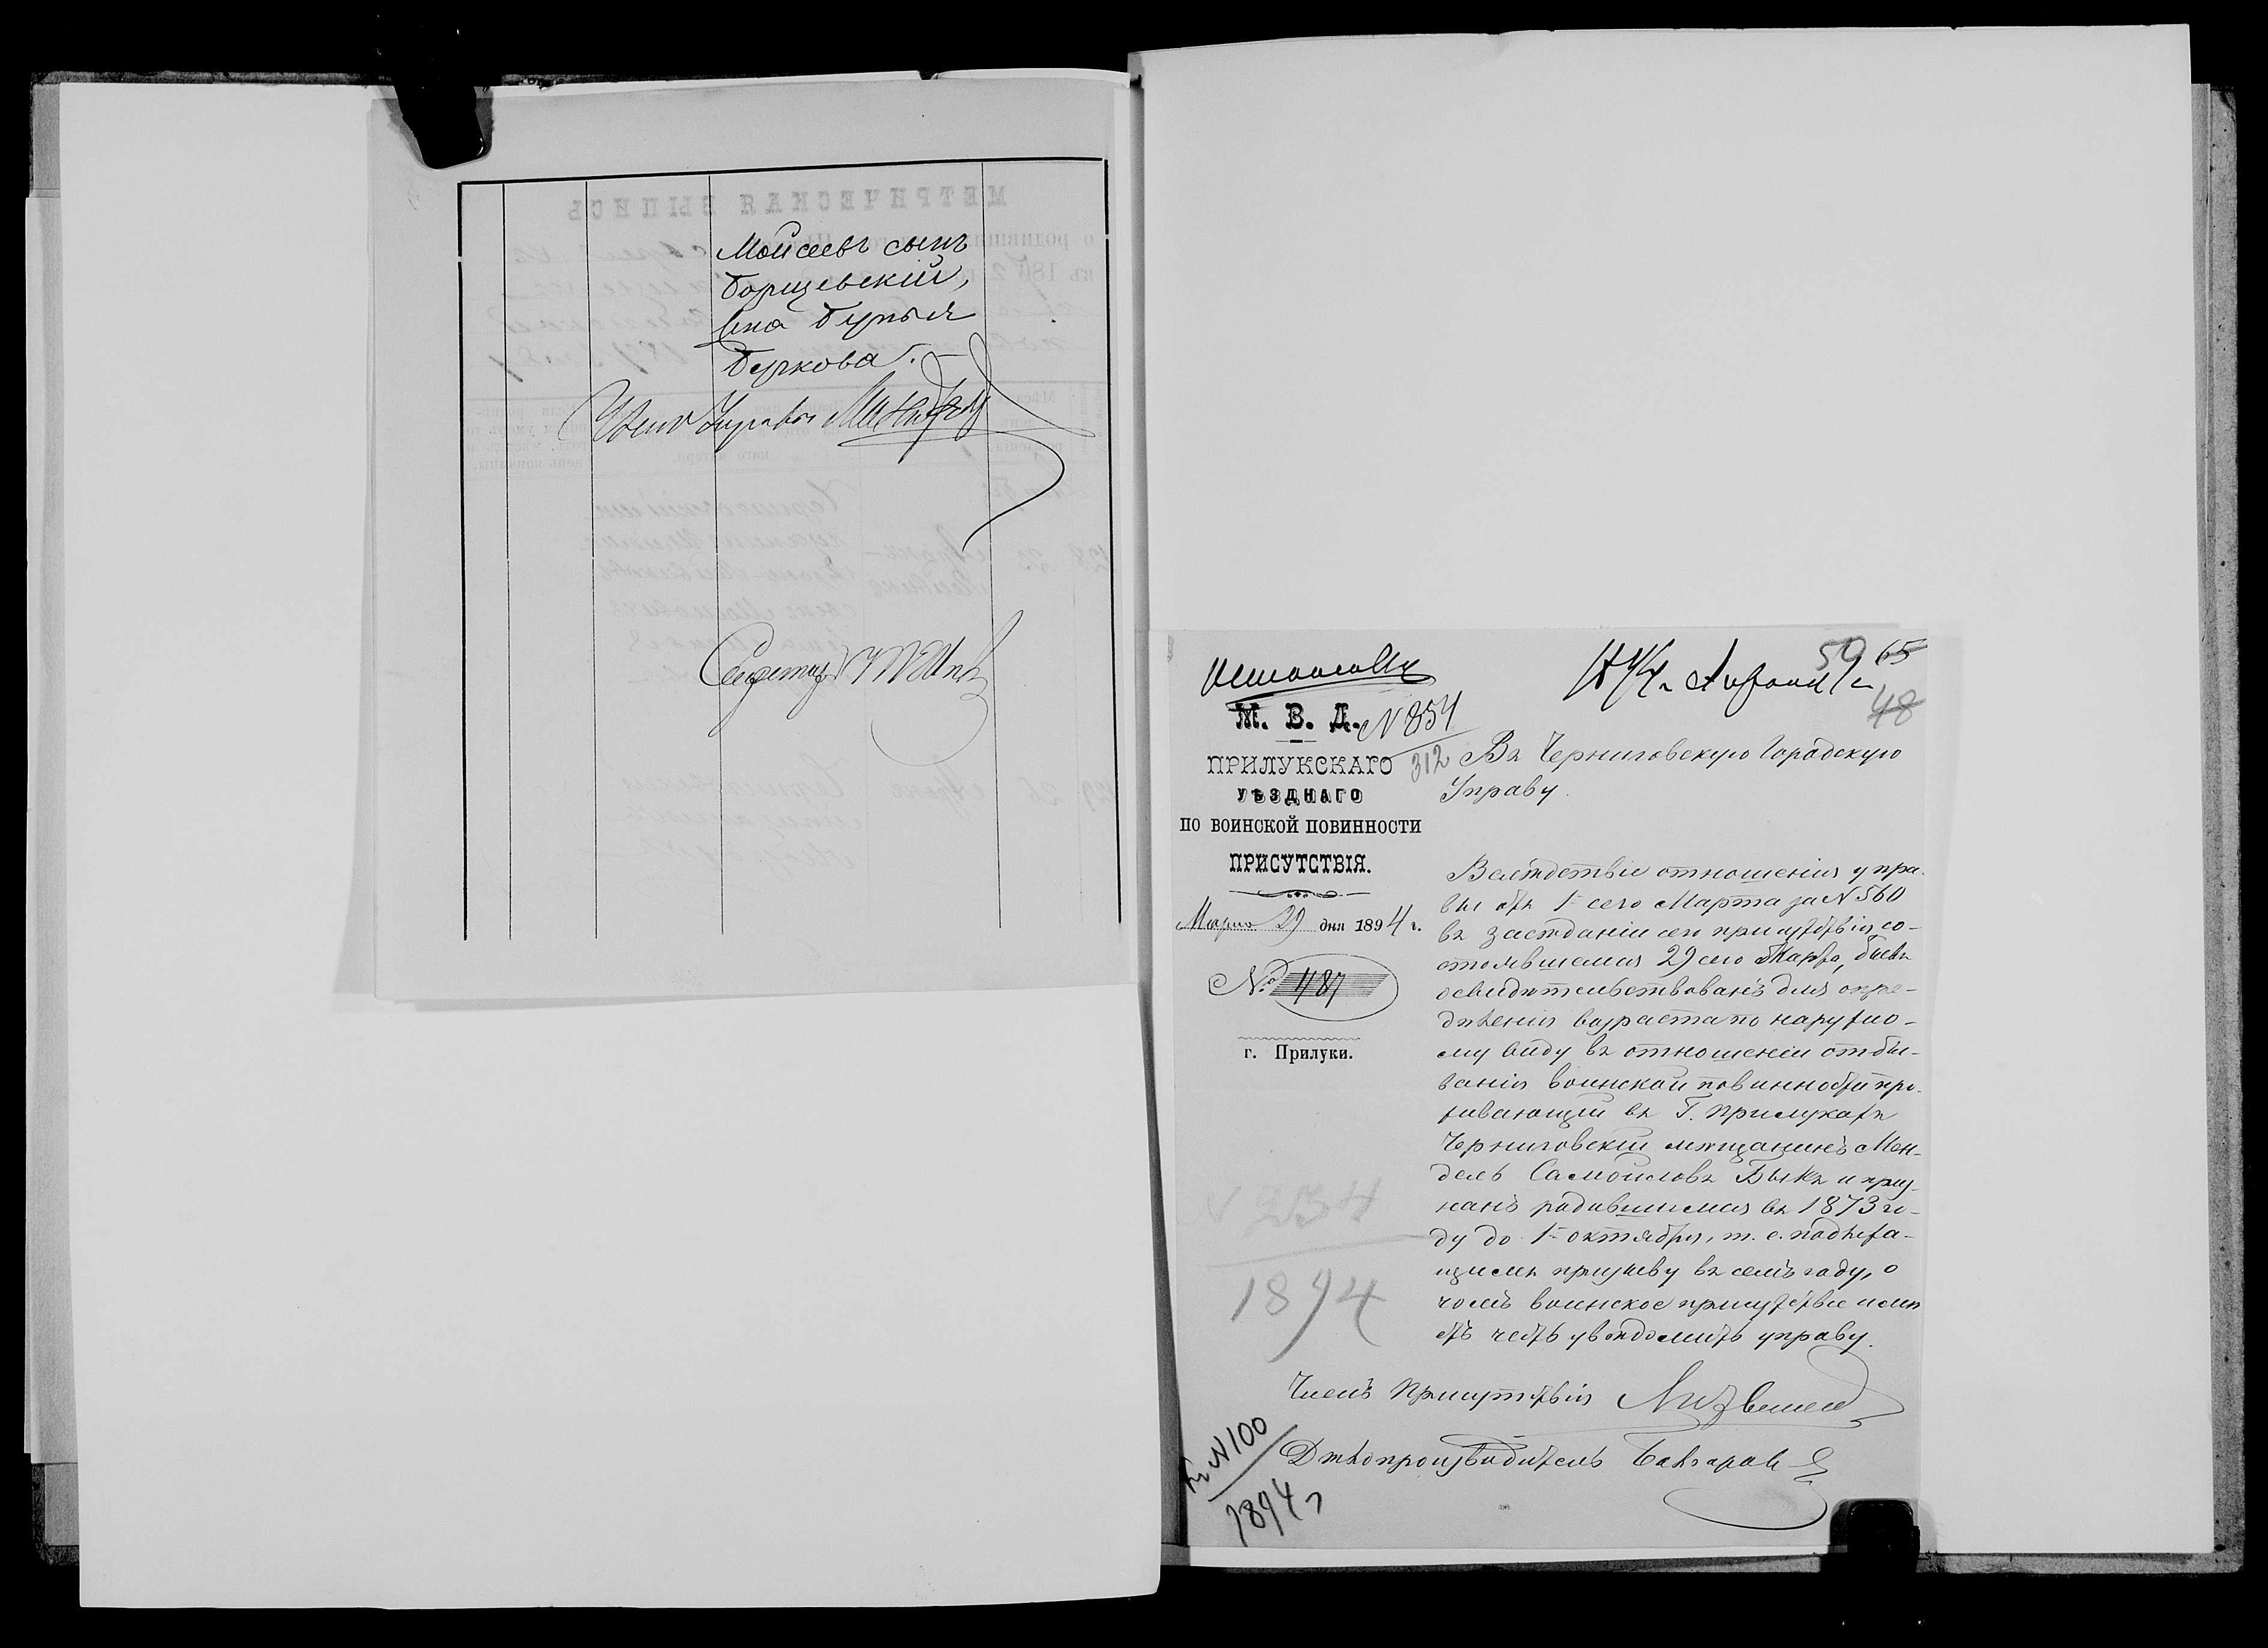 Мойсеевъ сынъ
Борщевскій,
Она Бунья
Беркова.
Членъ Управы
Секретарь
59 65
48
М. В. Д. № 854
312
ПРИЛУКСКАГО
УѢЗДНАГО
ПО ВОИНСКОЙ ПОВИННОСТИ
ПРИСУТСТВІЯ.
Марта 29 дня 1894 г.
№ 487
г. Прилуки.
Въ Черниговскую Городскую
Управу.
Вслѣдствіе отношенія упра-
вы отъ 1 сего Марта за № 560
въ засѣданіи сего присутствія, со-
стоявшемся 29 сего Марта, былъ
освидѣтельствованъ для опре-
дѣленія возраста по наружно-
му виду въ отношеніи отбы-
ванія воинской повинности про-
живающій въ г. Прилукахъ
Черниговскій мѣщанинъ Мен-
дель Самойловъ Быкъ и приз-
нанъ родившимся въ 1873 го-
ду до 1 октября, т. е. подлежа-
щимъ призыву въ семъ году, о
чемъ воинское присутствіе имѣ-
етъ честь увѣдомить управу.
Членъ Присутствія
Дѣлопроизводитель
№ 254
1894
№ 100
1894 г